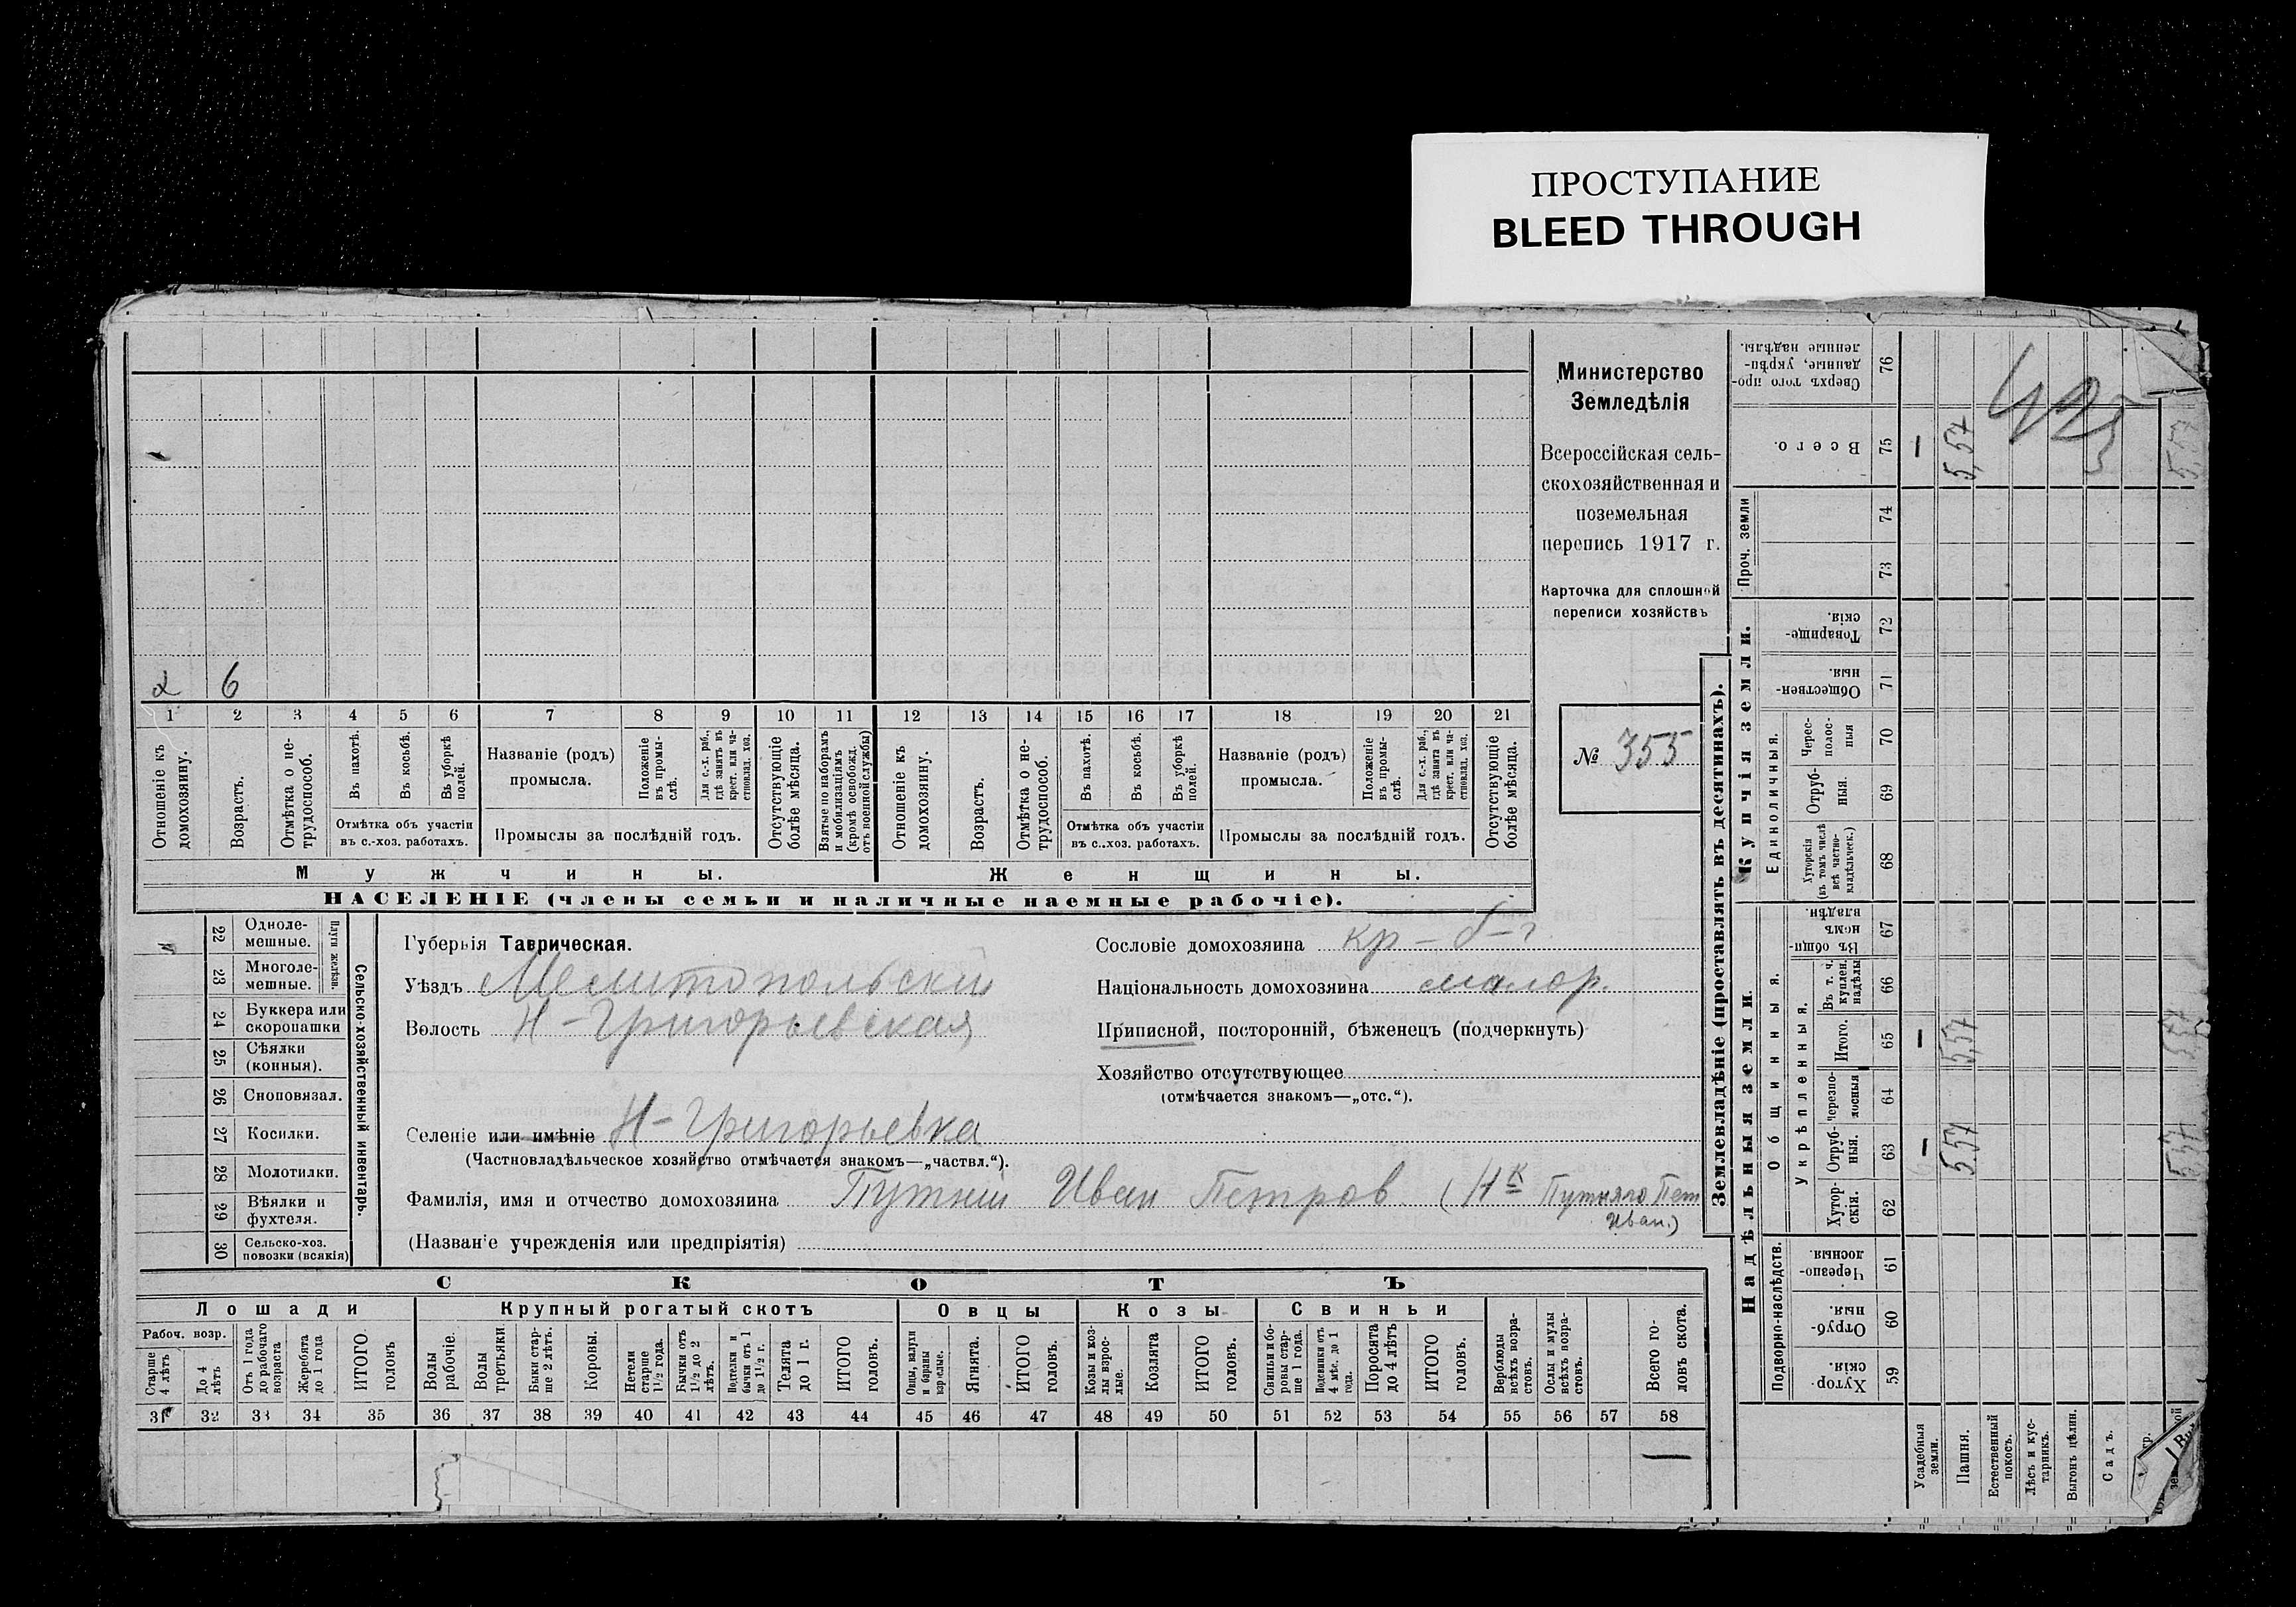 ПРОСТУПАНИЕ
BLEED THROUGH
Министерство
Земледѣлія
Всероссійская сель-
скохозяйственная и
поземельная
перепись 1917 г.
Карточка для сплошной
переписи хозяйствъ
№ 355
2 6
1 2 3 4 5 6 7 8 9 10 11 12 13 14 15 16 17 18 19 20 21
Отношеніе къ домохозяину.
Возрастъ.
Отмѣтка о не-трудоспособ.
Въ пахотѣ.
Въ косьбѣ.
Въ уборкѣ полей.
Отмѣтка объ участіи
въ с.-хоз. работахъ.
Названіе (родъ)
промысла.
Положеніе въ промы-слѣ.
Для с.-х. раб., гдѣ занятъ въ крест. или ча-стновлад. хоз.
Промыслы за послѣдній годъ.
Отсутствующіе болѣе мѣсяца.
Взятые по наборамъ и мобилизаціямъ (кромѣ освобожд. отъ военной службы)
Отношеніе къ домохозяину.
Возрастъ.
Отмѣтка о не-трудоспособ.
Въ пахотѣ.
Въ косьбѣ.
Въ уборкѣ полей.
Отмѣтка объ участіи
въ с.-хоз. работахъ.
Названіе (родъ)
промысла.
Положеніе въ промы-слѣ.
Для с.-х. раб., гдѣ занятъ въ крест. или ча-стновлад. хоз.
Промыслы за послѣдній годъ.
Отсутствующіе болѣе мѣсяца.
Мужчины. Женщины.
НАСЕЛЕНІЕ (члены семьи и наличные наемные рабочіе).
22 Одноле-мешные.
23 Многоле-мешные.
Плуги желѣзн.
24 Буккера или скоропашки
25 Сѣялки (конныя).
26 Сноповязал.
27 Косилки.
28 Молотилки.
29 Вѣялки и фухтеля.
30 Сельско-хоз. повозки (всякія)
Сельско-хозяйственный инвентарь.
Губернія Таврическая.
Уѣздъ Мелитопольский
Волость Н-Григорьевская
Селеніе или имѣніе Н-Григорьевка
(Частновладѣльческое хозяйство отмѣчается знакомъ—„частвл.“).
Фамилія, имя и отчество домохозяина Путній Иван Петров (Нк Путняго Пет
Иван.)
(Названіе учрежденія или предпріятія)
Сословіе домохозяина кр-
Національность домохозяина малор.
Приписной, посторонній, бѣженецъ (подчеркнуть)
Хозяйство отсутствующее
(отмѣчается знакомъ—„отс.“).
СКОТЪ
Лошади
Крупный рогатый скотъ
Овцы
Козы
Свиньи
Рабоч. возр.
Старше 4 лѣтъ
До 4 лѣтъ
Отъ 1 года до рабочаго возраста
Жеребята до 1 года
ИТОГО головъ
Волы рабочіе.
Волы третьяки.
Быки стар-ше 2 лѣтъ.
Коровы.
Нетели старше 1½ года.
Бычки отъ 1½ до 2 лѣтъ.
Подтелки и бычки отъ 1 до 1½ г.
Телята до 1 г.
ИТОГО головъ.
Овцы, валухи и бараны взрослые.
Ягнята.
ИТОГО головъ.
Козы и коз-лы взрос-лые.
Козлята
ИТОГО головъ.
Свиньи и бо-ровы стар-ше 1 года.
Подсвинки отъ 4 мѣс. до 1 года.
Поросята до 4 лѣтъ
ИТОГО головъ.
Верблюды всѣхъ возра-стовъ.
Ослы и мулы всѣхъ возра-стовъ.
Всего го-ловъ скота.
31 32 33 34 35 36 37 38 39 40 41 42 43 44 45 46 47 48 49 50 51 52 53 54 55 56 57 58
—
Землевладѣніе (проставлять въ десятинахъ).
Надѣльныя земли.
Купчія земли.
Проч. земли
Подворно-наслѣдств.
Общинныя.
Укрѣпленныя.
Единоличныя.
Хутор-скія. 59
Отруб-ныя. 60
Черезпо-лосныя 61
Хутор-скія. 62
Отруб-ныя. 63 — 5.57 5.57
Черезпо-лосныя 64
Итого. 65 — 5,57
Въ т. ч. куплен. надѣлы 66
Въ общин-номъ владѣн. 67
Хуторскія (въ томъ числѣ всѣ частно-владѣльческ.) 68
Отруб-ныя. 69
Черес-полос-ныя 70
Обществен-ныя. 71
Товарище-скія. 72
73
74
Всего. 75 — 5,57 5,57
Сверхъ того про-данные, укрѣп-ленные надѣлы. 76
Усадебныя земли.
Пашня.
Естественный покосъ.
Лѣсъ и кус-тарникъ.
Выгонъ цѣлин.
Садъ.